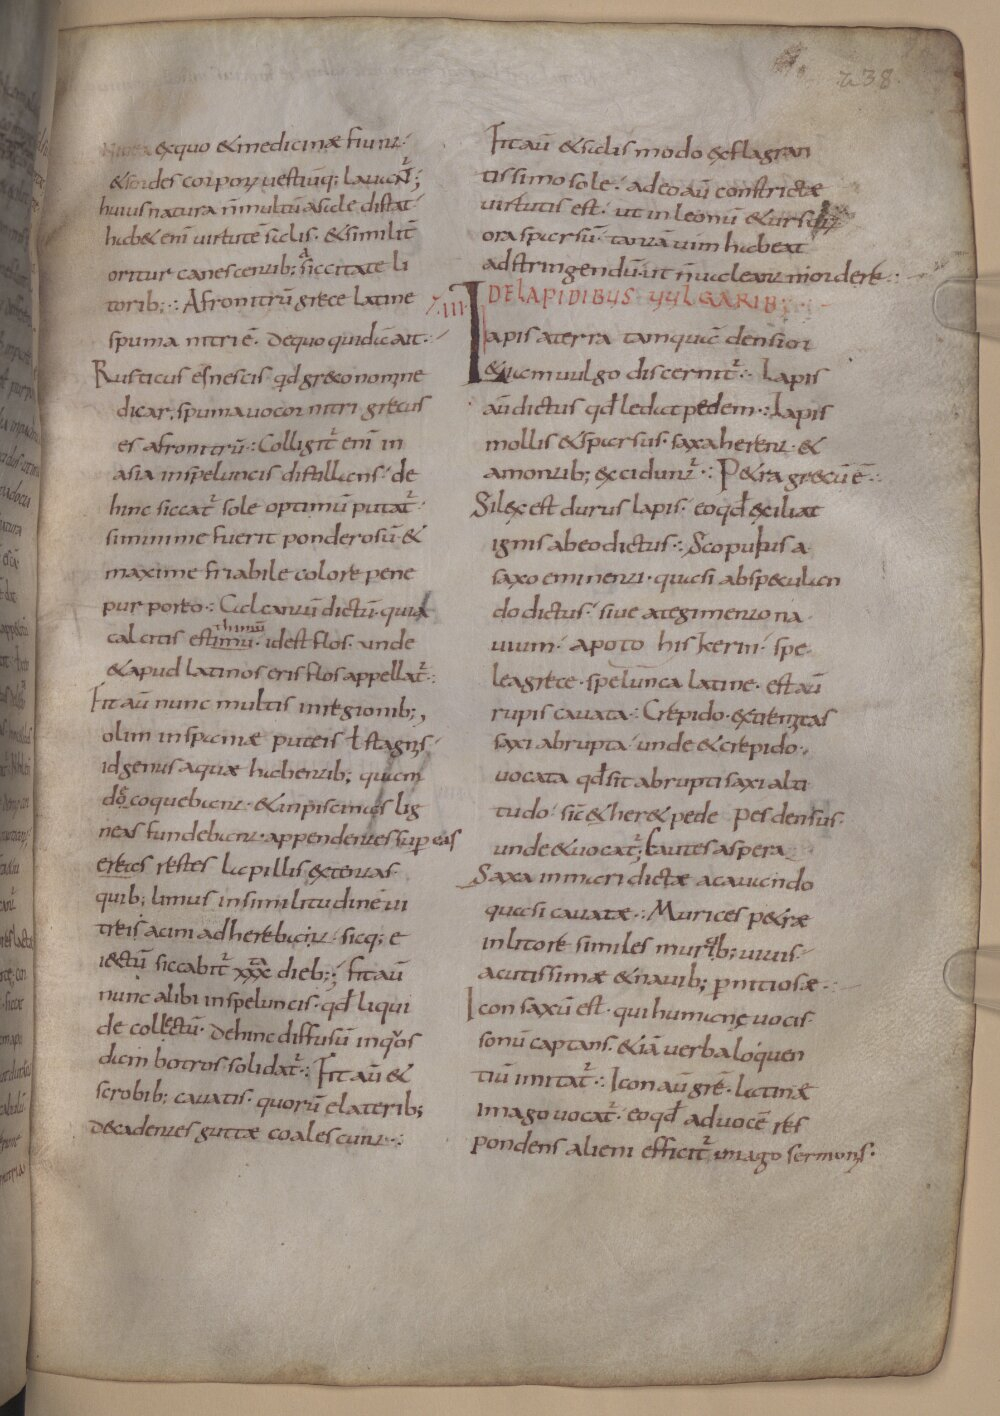 238.
exquo &medicinæ fiunt·
&sordes corporu uestiuq; lauant̄;
huius natura n̄ multū asale distat·
hab& enī uirtutē salis· &similit̄
oritur canescentib; siccitate li
torib;·: Afronitrū grece latine
spuma nitri ē· dequo quidā ait·
Rusticus es nescis qđ greco nomine
dicar, spuma uocor nitri grecus
es afronitrū·: Colligit̄ enī in
asia inspeluncis distillans· de
hinc siccat̄ sole optimū putat̄·
siminime fuerit ponderosū &
maxime friabile colore pene
purporeo·: Calcantū dictū· quia
calcitis estimu· idest flos· unde
thimū
&apud latinos eris flos appellat̄·:
Fit aū nunc multis inregionib;,
olim inspaniæ puteis ł stagnis·
id genus aquæ habentib; quam
do coquebant· &inpiscinas lig
neas fundebant· appendentes sup eas
ereas restes lapillis extentas·
quib; limus insimilitudinē ui
treis acini adherebant· sicq; e
iectū siccabit̄ xxx dieb;; fit aū
nunc alibi inspeluncis· qđ liqui
de collectū· dehinc diffusū inqos
dam botros solidat̄·: Fit aū &
scrobib; cauatis· quorū elaterib;
decadentes guttæ coalescunt·:
Fit aū &salis modo exflagran
tissimo sole·: adeo aū constrictæ
uirtutis est· ut inleonū &ursorū
ora sparsū· tantā uim habeat
adstringendū· ut n̄ualeant mordere·:
XIII DELAPIDIBUS UULGARIB;
Lapis aterra tamquā densior
&iam uulgo discernit̄·: Lapis
aū dictus qđ ledat pedem·: Lapis
mollis &sparsus· saxa herent· &
amontib; exciduntr̄·: P&ra grecū ē·:
Silex est durus lapis· eoqđ exiliat
ignis abeo dictus·: Scopulus a
saxo eminenti· quasi abspeculan
do dictus· siue ategimento na
uium· apoto his kerin· spe
lea grece· spelunca latine· est aū
rupis cauata·: Crepido· extremitas
saxi abrupta· unde &crepido·
uocata qđ sit abrupti saxi alti
tudo· sic &her& pede pes densus·
unde &uocat̄; Cautes aspera
Saxa inmari dictæ acauendo
quasi cautæ·: Murices p&ræ
inlitore similes muricib; uiuis·
acutissimæ &nauib; pnitiosæ·:
Icon saxū est· qui humanę uocis
sonū captans· &iā uerba loquen
tiū imitat̄·: Icon aū grē· latinæ
imago uocat̄· eoqđ aduocē res
pondens alieni efficit̄ imago sermonis·